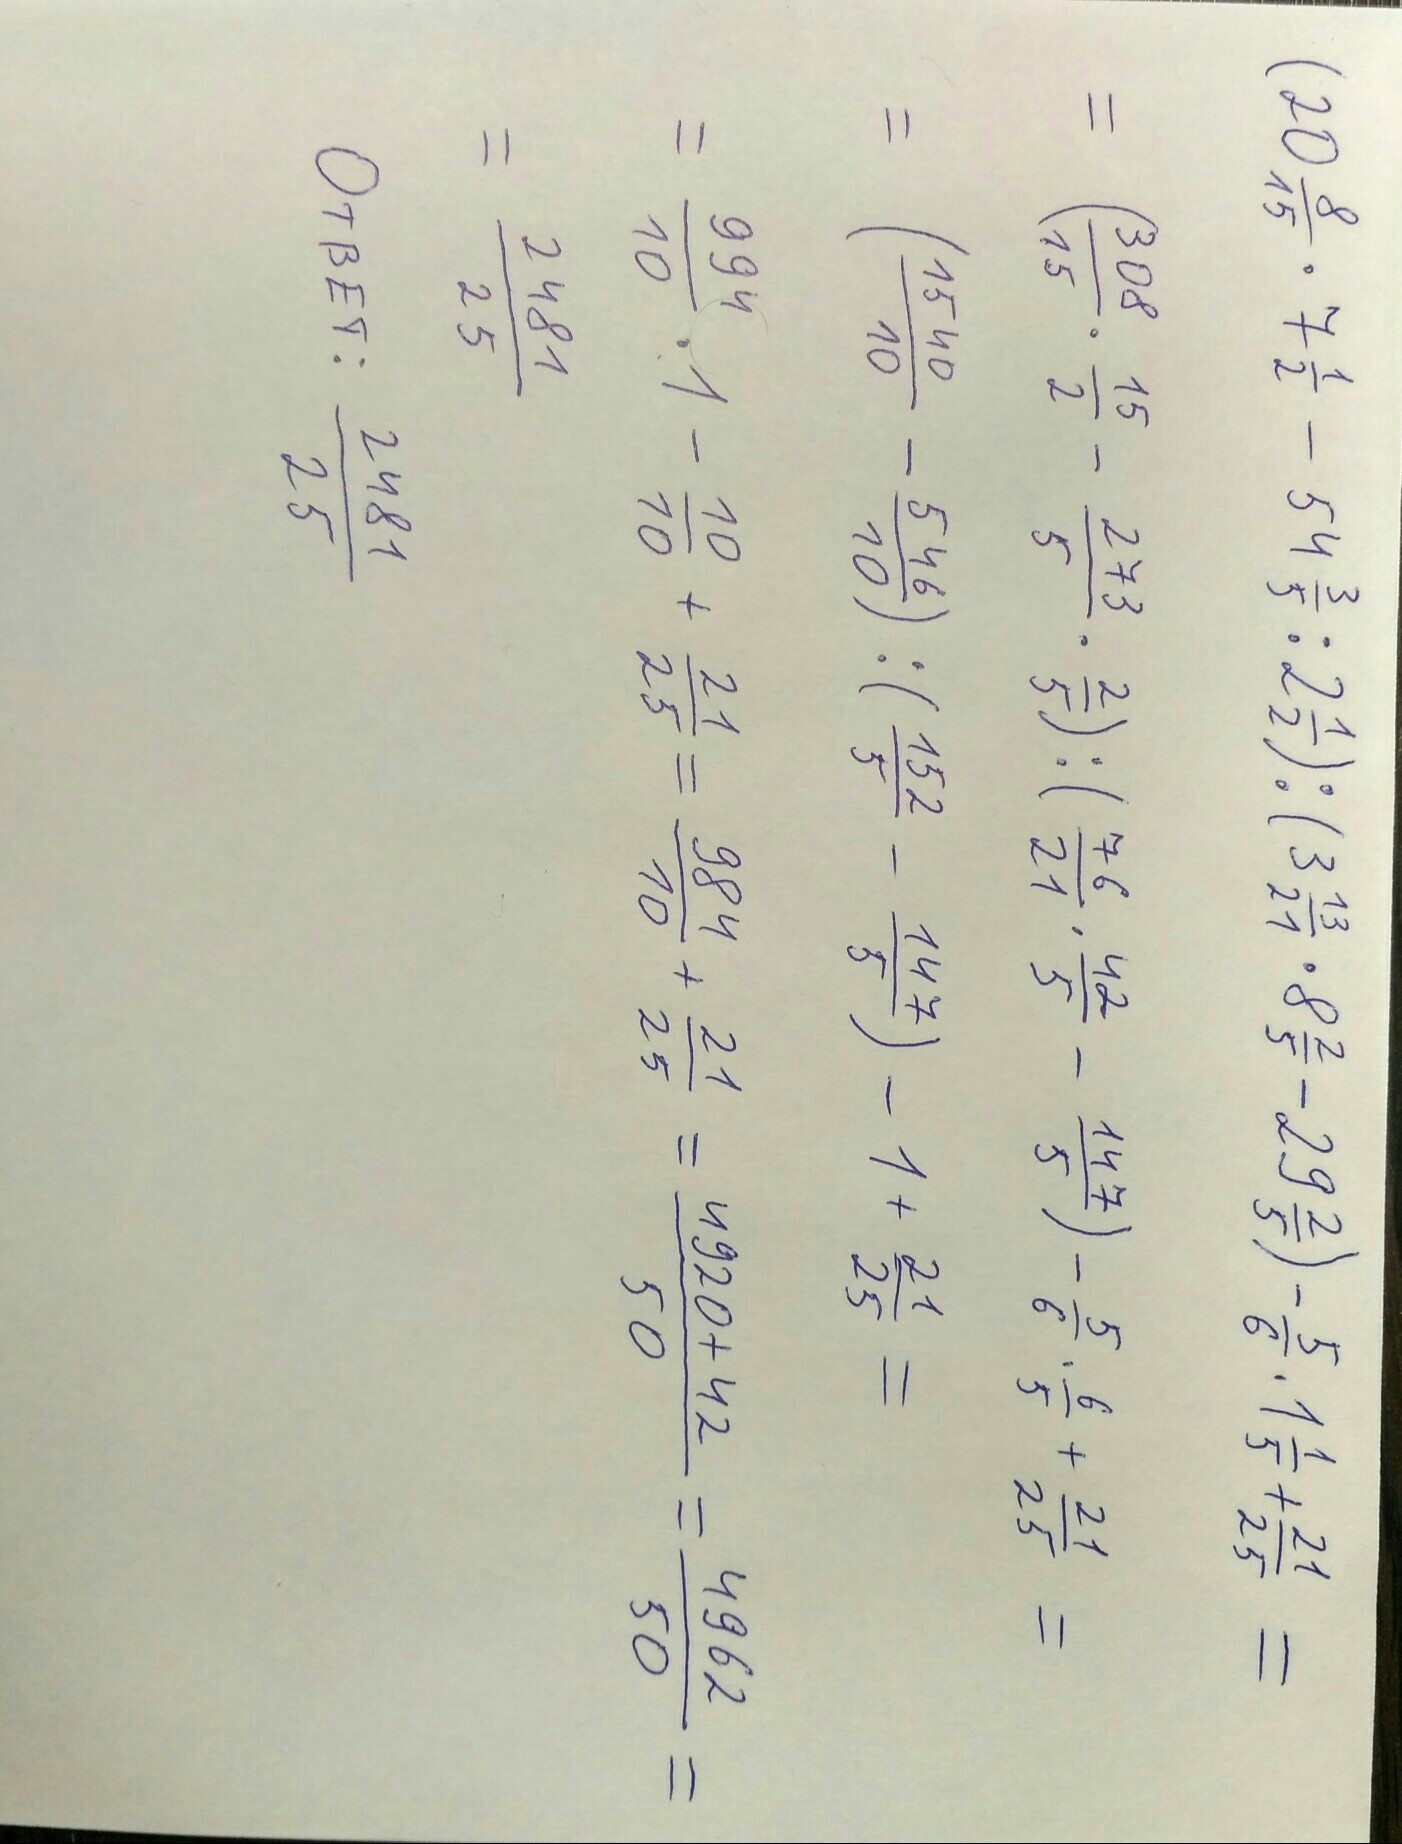 (20 8/15 · 7 1/2 - 54 3/5 : 2 1/2) : (3 13/21 · 8 2/5 - 29 2/5) - 5/6 · 1 1/5 + 21/25 =
= (308/15 · 15/2 - 273/5 · 2/5) : (76/21 · 42/5 - 147/5) - 5/6 · 6/5 + 21/25 =
= (1540/10 - 546/10) : (152/5 - 147/5) - 1 + 21/25 =
= 994/10 · 1 - 10/10 + 21/25 = 984/10 + 21/25 = 4920+42/50 = 4962/50 =
= 2481/25
Ответ: 2481/25